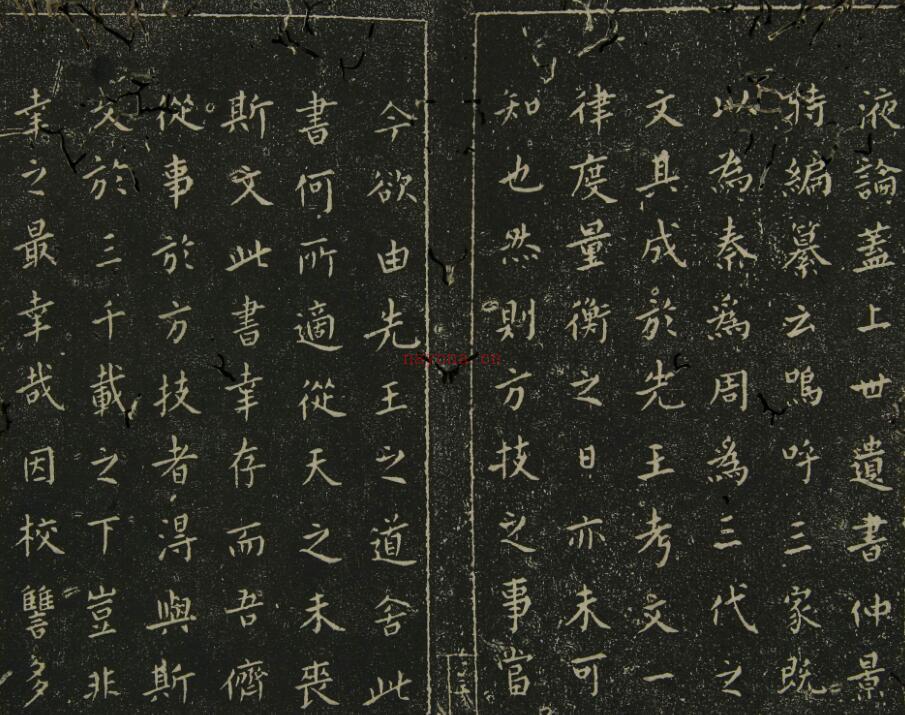 液論蓋上世遺書仲景
特編纂云嗚呼三家既
以為秦為周為三代之
文具成於先王考文一
律度量衡之日亦未可
知也然則方技之事當
今欲由先王之道舍此
書何所適從天之未喪
斯文此書幸存而吾儕
從事於方技者得與斯
文於三千載之下豈非
幸之最幸哉因校讐多
nayona.cn